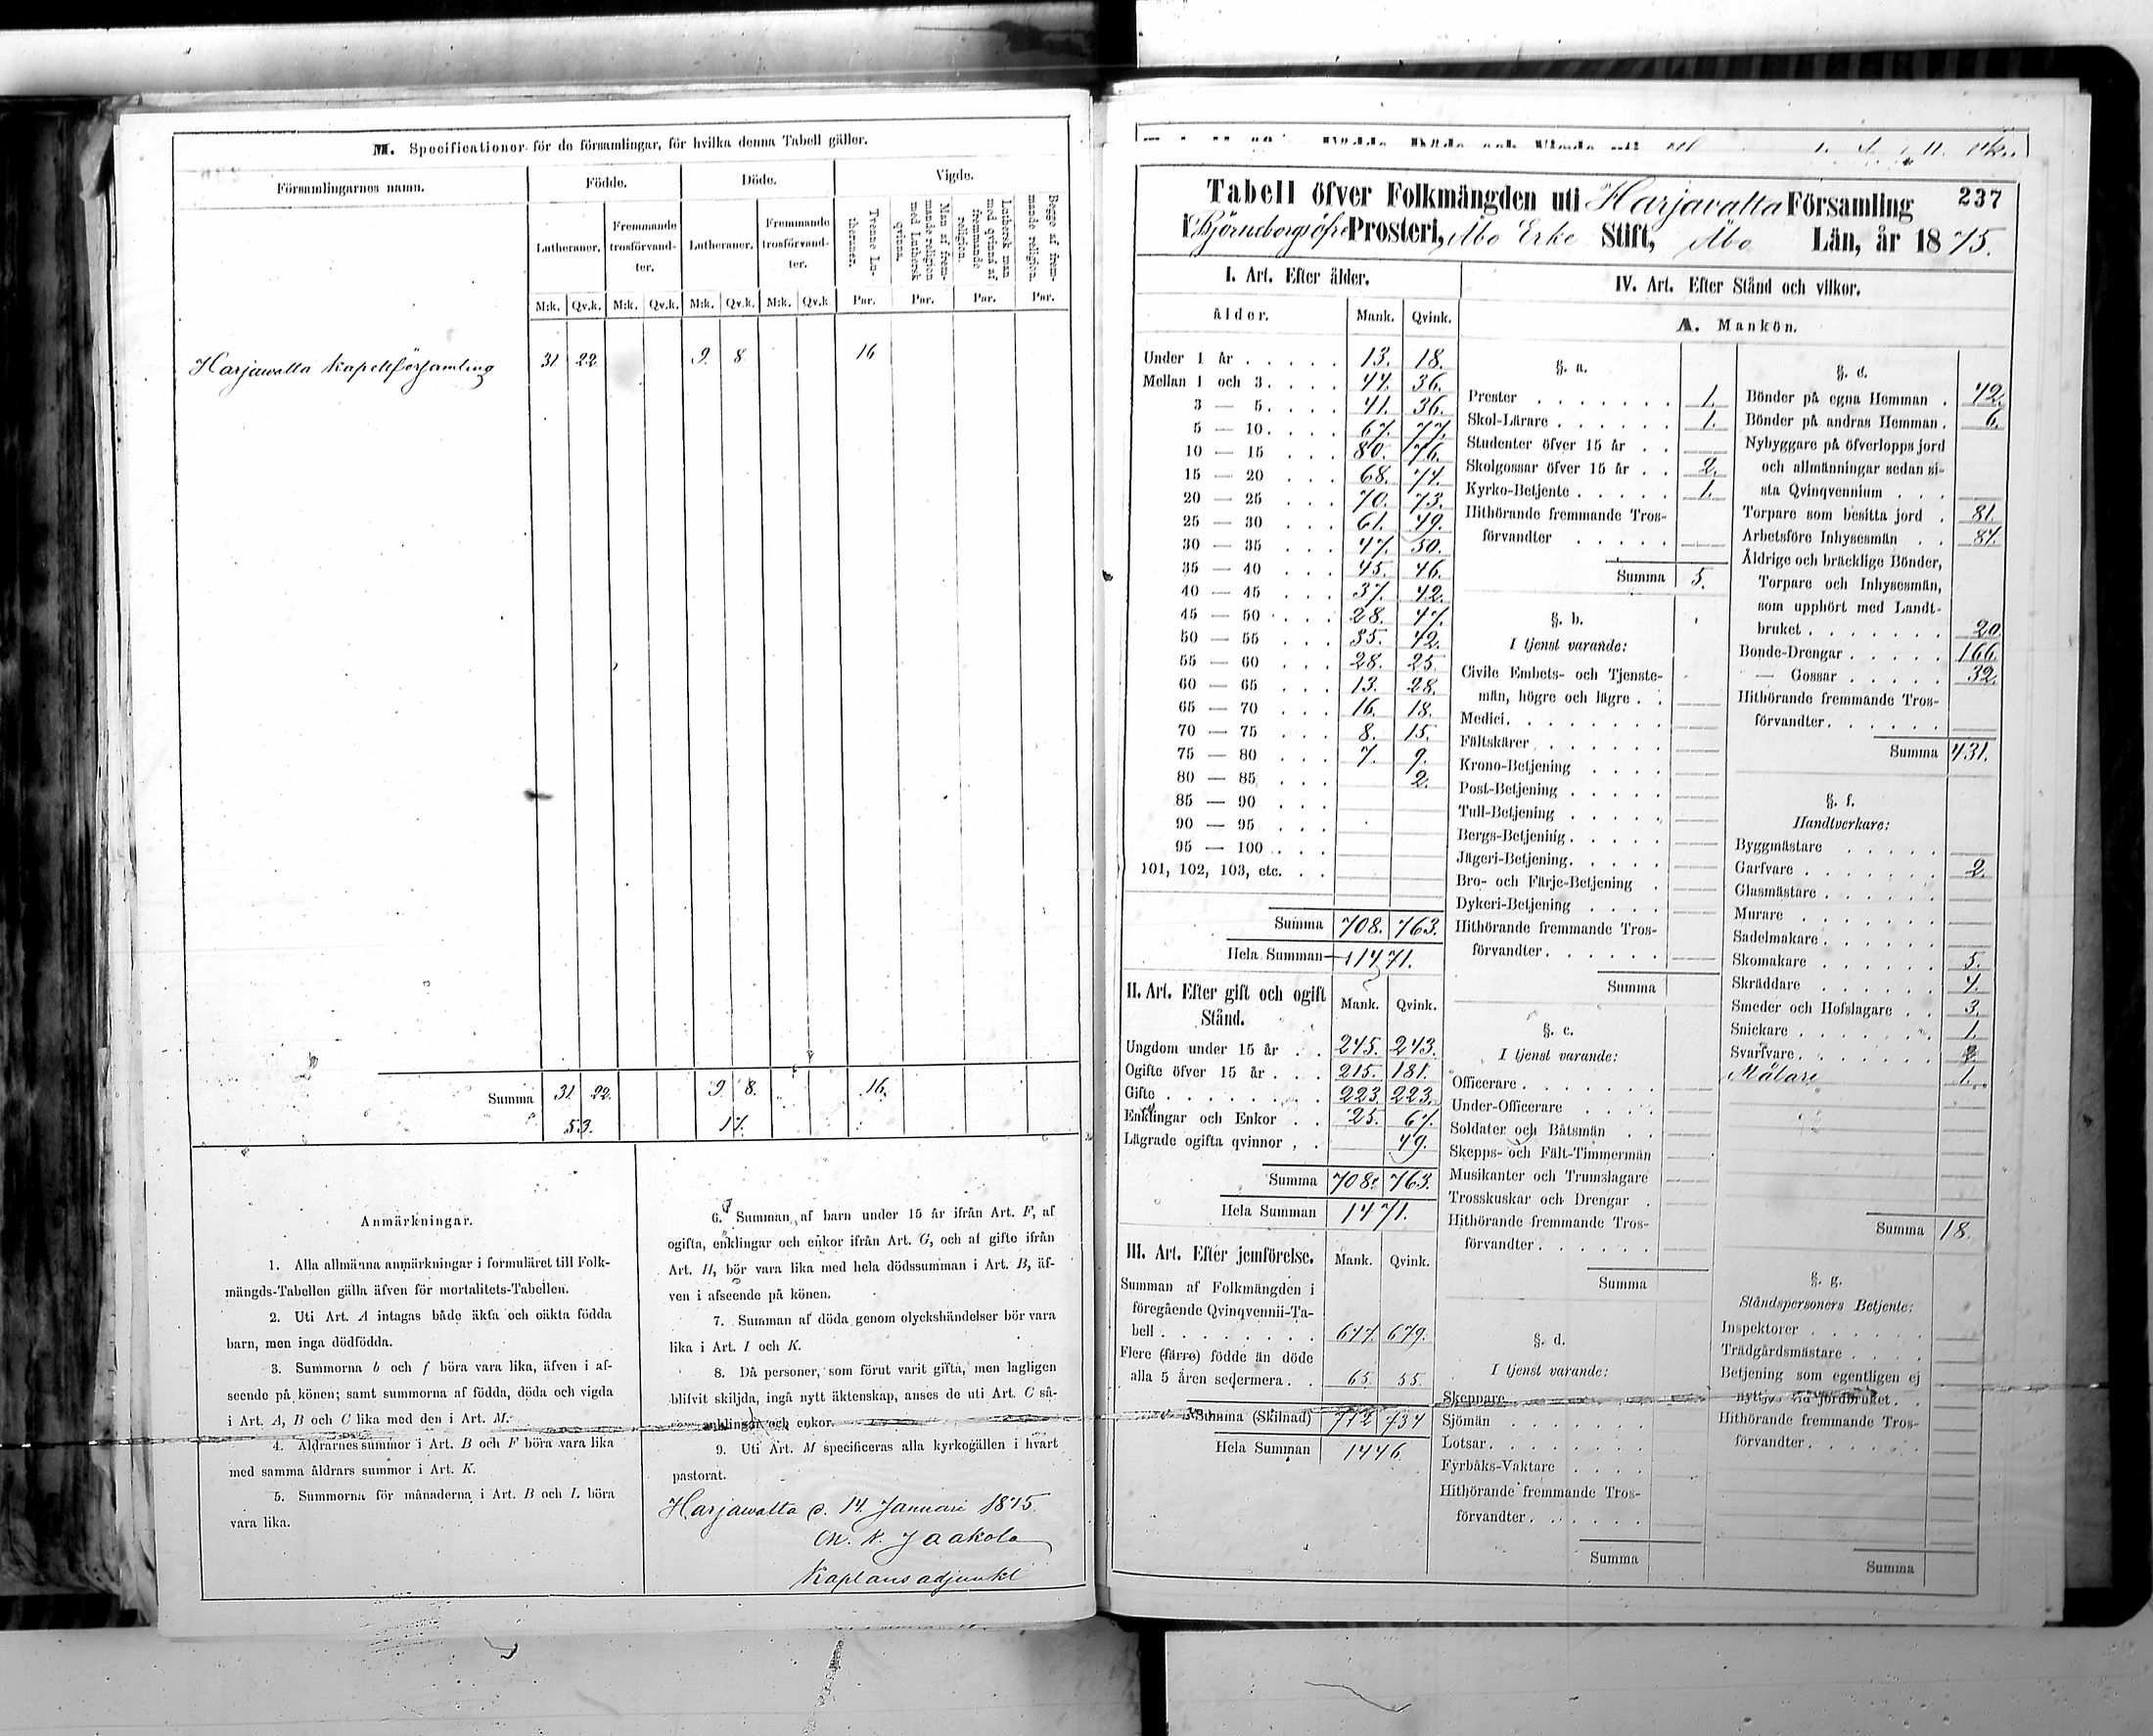 M. Specificationer för de församlingar, för hvilka denna Tabell gäller.
Församlingarnes namn.
Födde.
Döde.
Vigde.
Lutheraner.
Fremmande trosförvandter.
Lutheraner.
Fremmande trosförvandter.
Tvenne Lutheraner.
Man af fremmande religion med Luthersk qvinna.
Luthersk man med qvinna af fremmande religion.
Begge af fremmande religion.
M:k. Qv.k. M:k. Qv.k. M:k. Qv.k. M:k. Qv.k Par. Par. Par. Par.
Harjawalta Kapellförsamling 31 22 9. 8. 16
Summa 31. 22. 9. 8. 16.
53. 17.
Anmärkningar.
1. Alla allmänna anmärkningar i formuläret till Folk-
mängds-Tabellen gälla äfven för mortalitets-Tabellen.
2. Uti Art. A intagas både äkta och oäkta födda
barn, men inga dödfödda.
3. Summorna b och f böra vara lika, äfven i af-
seende på könen; samt summorna af födda, döda och vigda
i Art. A, B och C lika med den i Art. M.
4. Åldrarnes summor i Art. B och F böra vara lika
med samma åldrars summor i Art. K.
5. Summorna för månaderna i Art. B och L böra
vara lika.
6. Summan af barn under 15 år ifrån Art. F, af
ogifta, enklingar och enkor ifrån Art. G, och af gifte ifrån
Art. H, bör vara lika med hela dödssumman i Art. B, äf-
ven i afseende på könen.
7. Summan af döda genom olyckshändelser bör vara
lika i Art. I och K.
8. Då personer, som förut varit gifta, men lagligen
blifvit skiljda, ingå nytt äktenskap, anses de uti Art. C så-
som enklingar och enkor.
9. Uti Art. M specificeras alla kyrkogällen i hvart
pastorat.
Harjawalta d. 14 Januari 1875.
Jaakola
Kaplansadjunkt
237
Tabell öfver Folkmängden uti Harjavalta Församling
i Björneborgs öfre Prosteri, Åbo Erke Stift, Åbo Län, år 1875.
I. Art. Efter ålder.
Ålder. Mank. Qvink.
Under 1 år 13. 18.
Mellan 1 och 3 44. 36.
3 — 5 41. 36.
5 — 10 67. 77.
10 — 15 80. 76.
15 — 20 68. 74.
20 — 25 70. 73.
25 — 30 61. 49.
30 — 35 47. 50.
35 — 40 45. 46.
40 — 45 37. 42.
45 — 50 28. 47.
50 — 55 35. 42.
55 — 60 28. 25.
60 — 65 13. 28.
65 — 70 16. 18.
70 — 75 8. 15.
75 — 80 7. 9.
80 — 85 2.
85 — 90
90 — 95
95 — 100
101, 102, 103, etc.
Summa 708. 763.
Hela Summan 1471.
II. Art. Efter gift och ogift Stånd. Mank. Qvink.
Ungdom under 15 år 245. 243.
Ogifte öfver 15 år 215. 181.
Gifte 223. 223.
Enklingar och Enkor 25. 67.
Lägrade ogifta qvinnor 49.
Summa 708. 763.
Hela Summan 1471.
III. Art. Efter jemförelse. Mank. Qvink.
Summan af Folkmängden i
föregående Qvinqvennii-Ta-
bell 647. 679.
Flere (färre) födde än döde
alla 5 åren sedermera 65. 55.
Summa (Skilnad) 712 734
Hela Summan 1446.
IV. Art. Efter Stånd och vilkor.
A. Mankön.
§. a.
Prester 1.
Skol-Lärare 1.
Studenter öfver 15 år
Skolgossar öfver 15 år 2.
Kyrko-Betjente 1.
Hithörande fremmande Tros-
förvandter
Summa 5.
§. b.
I tjenst varande:
Civile Embets- och Tjenste-
män, högre och lägre
Medici
Fältskärer
Krono-Betjening
Post-Betjening
Tull-Betjening
Bergs-Betjening
Jägeri-Betjening
Bro- och Färje-Betjening
Dykeri-Betjening
Hithörande fremmande Tros-
förvandter
Summa
§. c.
I tjenst varande:
Officerare
Under-Officerare
Soldater och Båtsmän
Skepps- och Fält-Timmermän
Musikanter och Trumslagare
Trosskuskar och Drengar
Hithörande fremmande Tros-
förvandter
Summa
§. d.
I tjenst varande:
Skeppare
Sjömän
Lotsar
Fyrbåks-Vaktare
Hithörande fremmande Tros-
förvandter
Summa
§. e.
Bönder på egna Hemman 42.
Bönder på andras Hemman 6.
Nybyggare på öfverlopps jord
och allmänningar sedan si-
sta Qvinqvennium
Torpare som besitta jord 81.
Arbetsföre Inhysesmän 84.
Åldrige och bräcklige Bönder,
Torpare och Inhysesmän,
som upphört med Landt-
bruket 20.
Bonde-Drengar 166.
— Gossar 32.
Hithörande fremmande Tros-
förvandter
Summa 431.
§. f.
Handtverkare:
Byggmästare
Garfvare 2.
Glasmästare
Murare
Sadelmakare
Skomakare 5.
Skräddare 4.
Smeder och Hofslagare 3.
Snickare 1.
Svarfvare 2.
Målare 1.
Summa 18.
§. g.
Ståndspersoners Betjente:
Inspektorer
Trädgårdsmästare
Betjening som egentligen ej
nyttjas vid jordbruket
Hithörande fremmande Tros-
förvandter
Summa